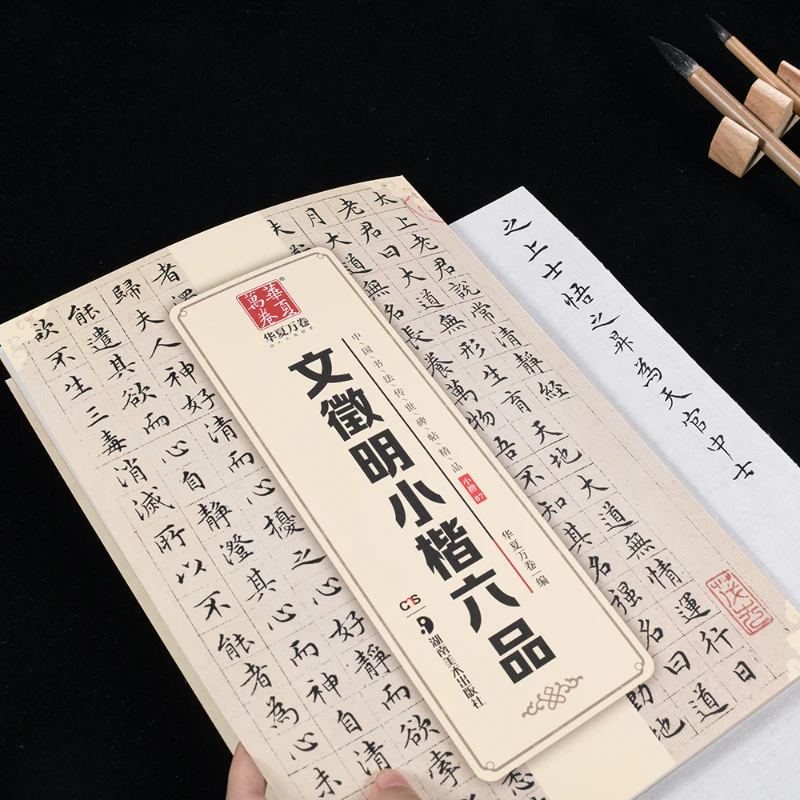 之上士悟之昇為天官中士
太上老君說常清靜經
老君曰大道無形生育天地大道無情運行日
月大道無名長養萬物吾不知其名强名曰道
華夏萬卷
®
华夏万卷
中国书法传世碑帖精品
小楷07
华夏万卷 编
文徵明小楷六品
CS
湖南美术出版社
者
歸夫人神好清而心擾之心好靜而欲
能遣其欲而心自靜澄其心而神自清
欲不生三毒消滅所以不能者為心未